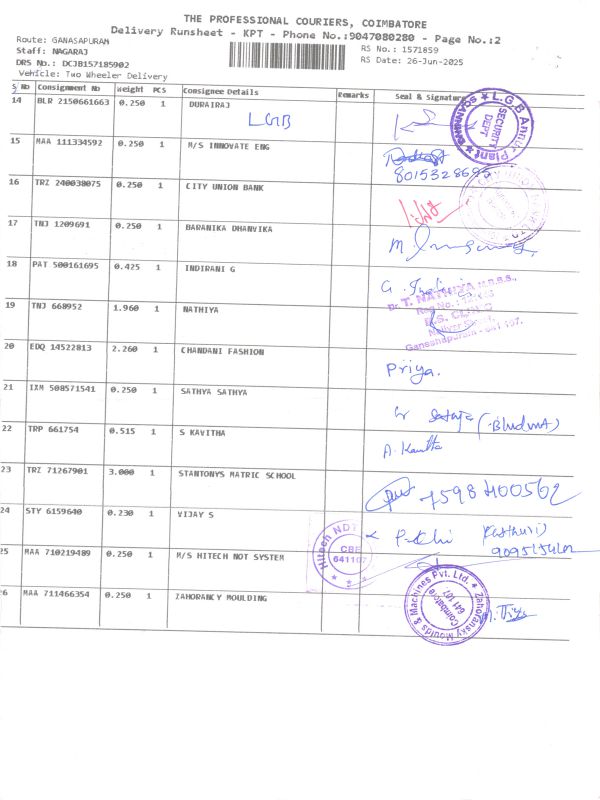 THE PROFESSIONAL COURIERS, COIMBATORE
Delivery Runsheet - KPT - Phone No.:9047080280 - Page No.:2
Route: GANASAPURAM
RS No.: 1571859
Staff: NAGARAJ
RS Date: 26-Jun-2025
DRS No.: DCJB157185902
Vehicle: Two Wheeler Delivery
S No Consignment No Weight PCS Consignee Details Remarks Seal & Signature
14 BLR 2150661663 0.250 1 DURAIRAJ
LGB
L.G.B Annur Plant
SECURITY DEPT
15 MAA 111334592 0.250 1 M/S INNOVATE ENG
8015328695
16 TRZ 240038075 0.250 1 CITY UNION BANK
17 TNJ 1209691 0.250 1 BARANIKA DHANVIKA
18 PAT 500161695 0.425 1 INDIRANI G
19 TNJ 668952 1.960 1 NATHIYA
Dr. T. NATHIYA M.B.B.S.,
Ganeshapuram - 641 107.
20 EDQ 14522813 2.260 1 CHANDANI FASHION
Priya.
21 IXM 508571541 0.250 1 SATHYA SATHYA
22 TRP 661754 0.515 1 S KAVITHA
23 TRZ 71267901 3.000 1 STANTONYS MATRIC SCHOOL
7598400562
24 STY 6159640 0.230 1 VIJAY S
25 MAA 710219489 0.250 1 M/S HITECH NOT SYSTEM
Hitech NDT
CBE
641107
26 MAA 711466354 0.250 1 ZAHORANCKY MOULDING
Zahoransky Moulds & Machines Pvt. Ltd.
Coimbatore
641 107